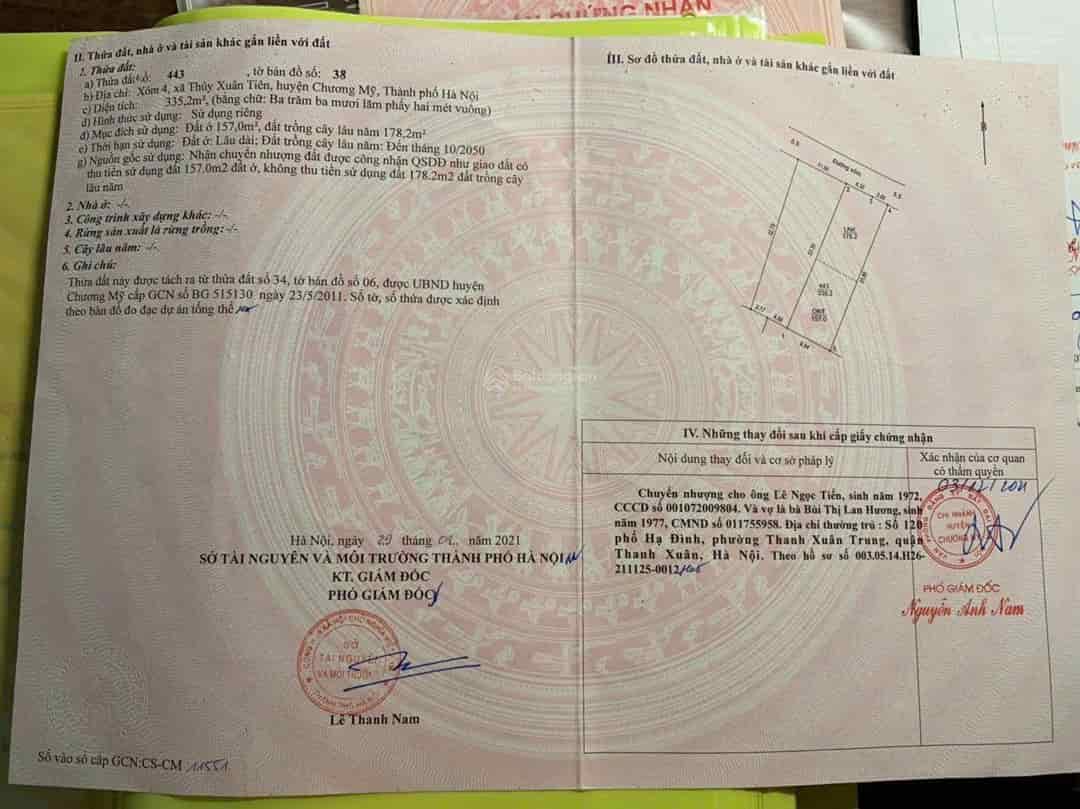 ẬN CHỨNG NHẬN
II. Thửa đất, nhà ở và tài sản khác gắn liền với đất
1. Thửa đất:
a) Thửa đất số: 443 , tờ bản đồ số: 38
b) Địa chỉ: Xóm 4, xã Thủy Xuân Tiên, huyện Chương Mỹ, Thành phố Hà Nội
c) Diện tích: 335,2m², (bằng chữ: Ba trăm ba mươi lăm phẩy hai mét vuông)
d) Hình thức sử dụng: Sử dụng riêng
đ) Mục đích sử dụng: Đất ở 157,0m², đất trồng cây lâu năm 178,2m²
e) Thời hạn sử dụng: Đất ở: Lâu dài; Đất trồng cây lâu năm: Đến tháng 10/2050
g) Nguồn gốc sử dụng: Nhận chuyển nhượng đất được công nhận QSDĐ như giao đất có
thu tiền sử dụng đất 157.0m2 đất ở, không thu tiền sử dụng đất 178.2m2 đất trồng cây
lâu năm
2. Nhà ở: -/-.
3. Công trình xây dựng khác: -/-.
4. Rừng sản xuất là rừng trồng: -/-.
5. Cây lâu năm: -/-.
6. Ghi chú:
Thửa đất này được tách ra từ thửa đất số 34, tờ bản đồ số 06, được UBND huyện
Chương Mỹ cấp GCN số BG 515130 ngày 23/5/2011. Số tờ, số thửa được xác định
theo bản đồ đo đạc dự án tổng thể
Hà Nội, ngày 29 tháng 01 năm 2021
SỞ TÀI NGUYÊN VÀ MÔI TRƯỜNG THÀNH PHỐ HÀ NỘI
KT. GIÁM ĐỐC
PHÓ GIÁM ĐỐC
SỞ
TÀI NGUYÊN
VÀ MÔI TRƯỜNG
THÀNH PHỐ HÀ NỘI
Lê Thanh Nam
Số vào sổ cấp GCN:CS-CM 11551
III. Sơ đồ thửa đất, nhà ở và tài sản khác gắn liền với đất
B
Đường xóm
LNK
178.2
443
335.2
ONT
157.0
IV. Những thay đổi sau khi cấp giấy chứng nhận
Nội dung thay đổi và cơ sở pháp lý
Xác nhận của cơ quan
có thẩm quyền
Chuyển nhượng cho ông Lê Ngọc Tiến, sinh năm 1972,
CCCD số 001072009804. Và vợ là bà Bùi Thị Lan Hương, sinh
năm 1977, CMND số 011755958. Địa chỉ thường trú : Số 120
phố Hạ Đình, phường Thanh Xuân Trung, quận
Thanh Xuân, Hà Nội. Theo hồ sơ số 003.05.14.H26-
211125-0012
CHI NHÁNH
HUYỆN
CHƯƠNG MỸ
PHÓ GIÁM ĐỐC
Nguyễn Anh Nam